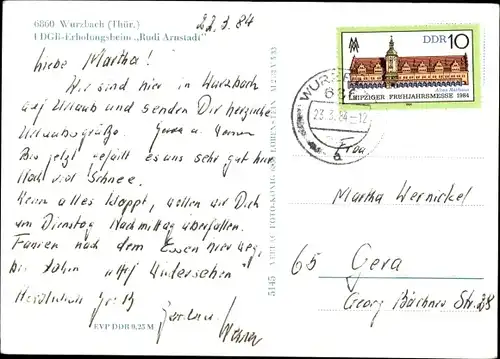 6860 Wurzbach (Thür.)
FDGB-Erholungsheim „Rudi Arnstadt"
22.3.84
Liebe Martha!
Wir sind hier in Wurzbach
auf Urlaub und senden Dir herzliche
Urlaubsgrüße. Gerda u. Werner
Bis jetzt gefällt es uns sehr gut hier
Noch viel Schnee.
Wenn alles klappt, wollen wir Dich
am Dienstag Nachmittag überfallen.
Fahren nach dem Essen hier weg,
bis dahin auf Wiedersehen
Herzlichen Gruß
Werner
EVP DDR 0,25 M
5145 VERLAG FOTO-KÖNIG
DDR 10
Altes Rathaus
LEIPZIGER FRÜHJAHRSMESSE 1984
WURZB
23.3.84-12
a
Frau
Martha Wernickel
65 Gera
Georg Büchner Str. 28